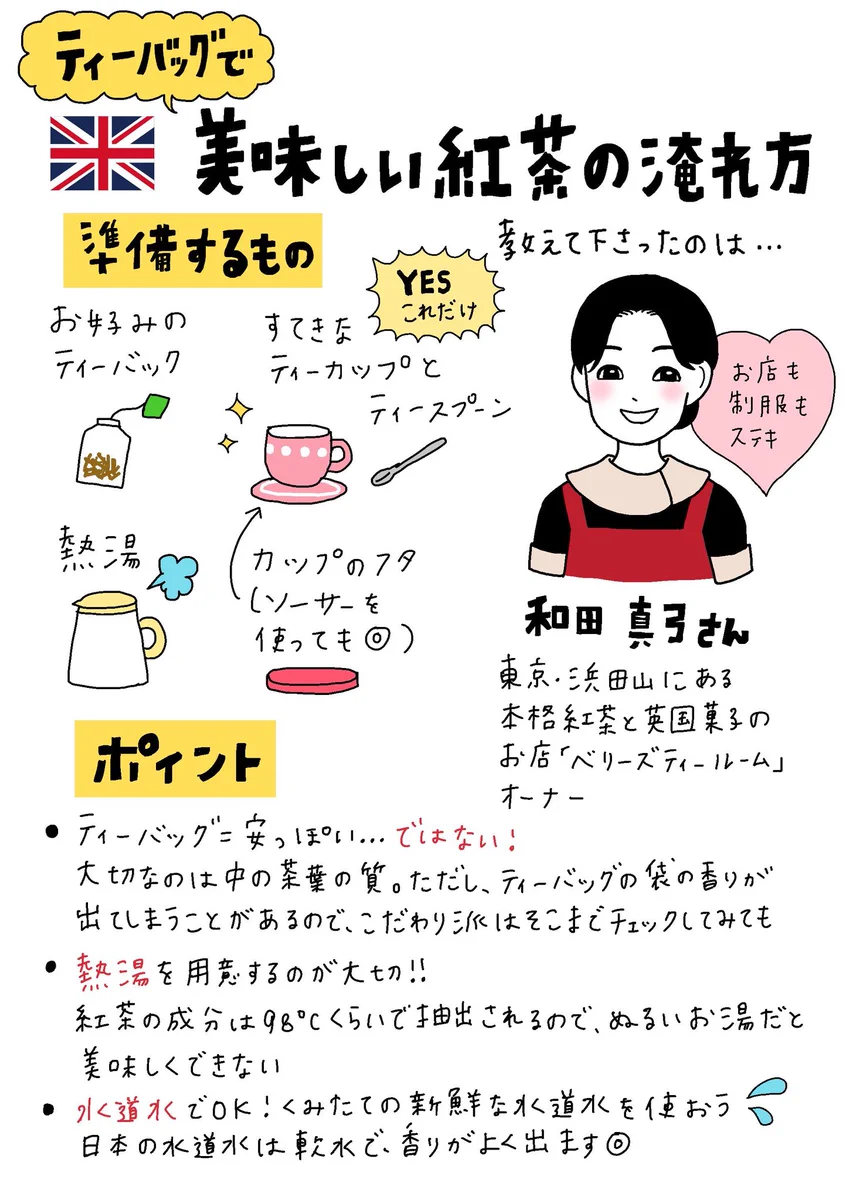 ティーバッグで
美味しい紅茶の淹れ方
準備するもの
お好みの
ティーバック
YES
これだけ
すてきな
ティーカップと
ティースプーン
熱湯
カップのフタ
(ソーサーを
使っても◎)
教えて下さったのは…
お店も
制服も
ステキ
和田 真弓さん
東京・浜田山にある
本格紅茶と英国菓子の
お店「ベリーズティールーム」
オーナー
ポイント
• ティーバッグ=安っぽい…ではない!
大切なのは中の茶葉の質。ただし、ティーバッグの袋の香りが
出てしまうことがあるので、こだわり派はそこまでチェックしてみても
• 熱湯を用意するのが大切!!
紅茶の成分は98℃くらいで抽出されるので、ぬるいお湯だと
美味しくできない
• 水道水でOK!くみたての新鮮な水道水を使おう
日本の水道水は軟水で、香りがよく出ます◎